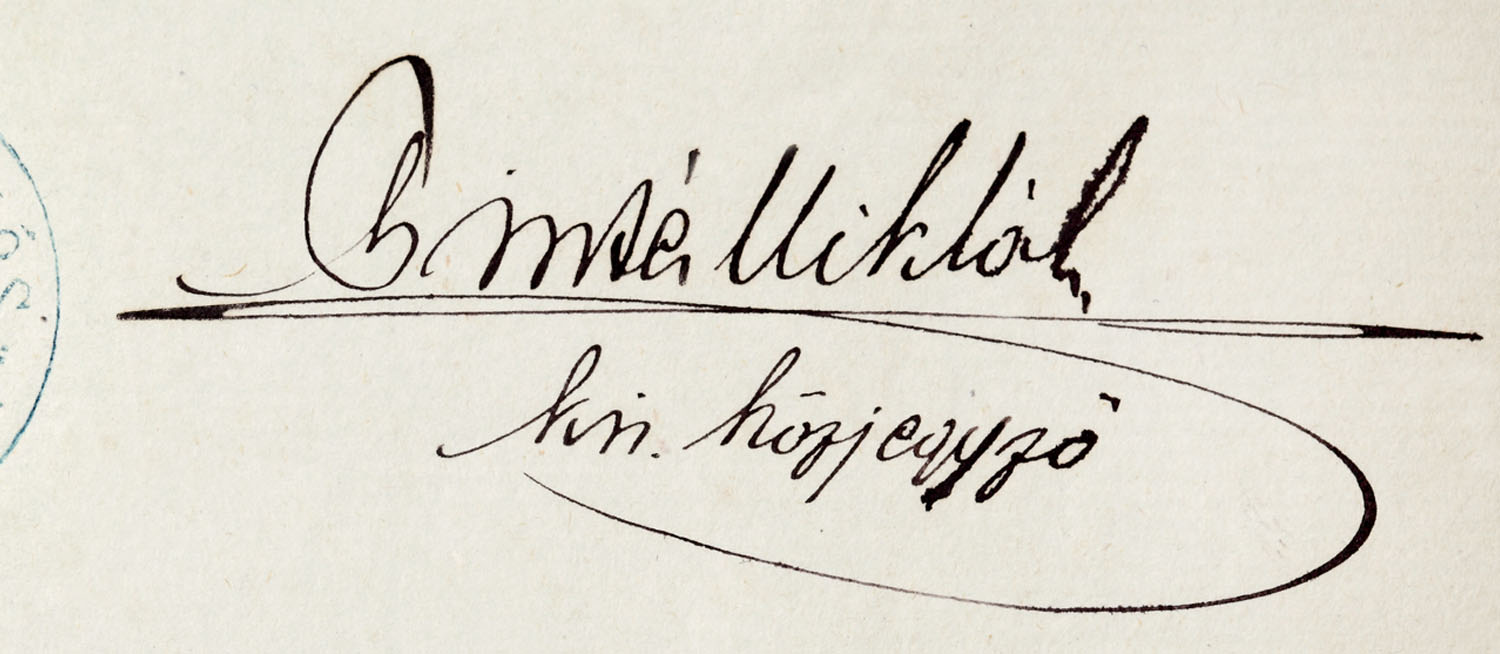 Pintér Miklós
kir. közjegyző